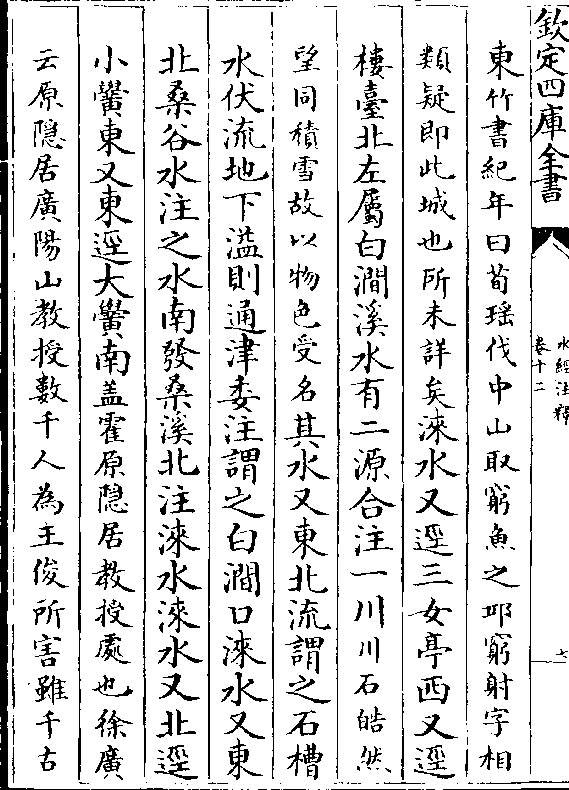 欽定四庫全書
水經注釋
卷十二
七
東竹書紀年曰荀瑤伐中山取窮魚之邱窮射字相
類疑即此城也所未詳矣淶水又逕三女亭西又逕
樓臺北左屬白澗溪水有二源合注一川川石皓然
望同積雪故以物色受名其水又東北流謂之石槽
水伏流地下溢則通津委注謂之白澗口淶水又東
北桑谷水注之水南發桑溪北注淶水淶水又北逕
小黌東又東逕大黌南盖霍原隱居教授處也徐廣
云原隱居廣陽山教授數千人為王俊所害雖千古